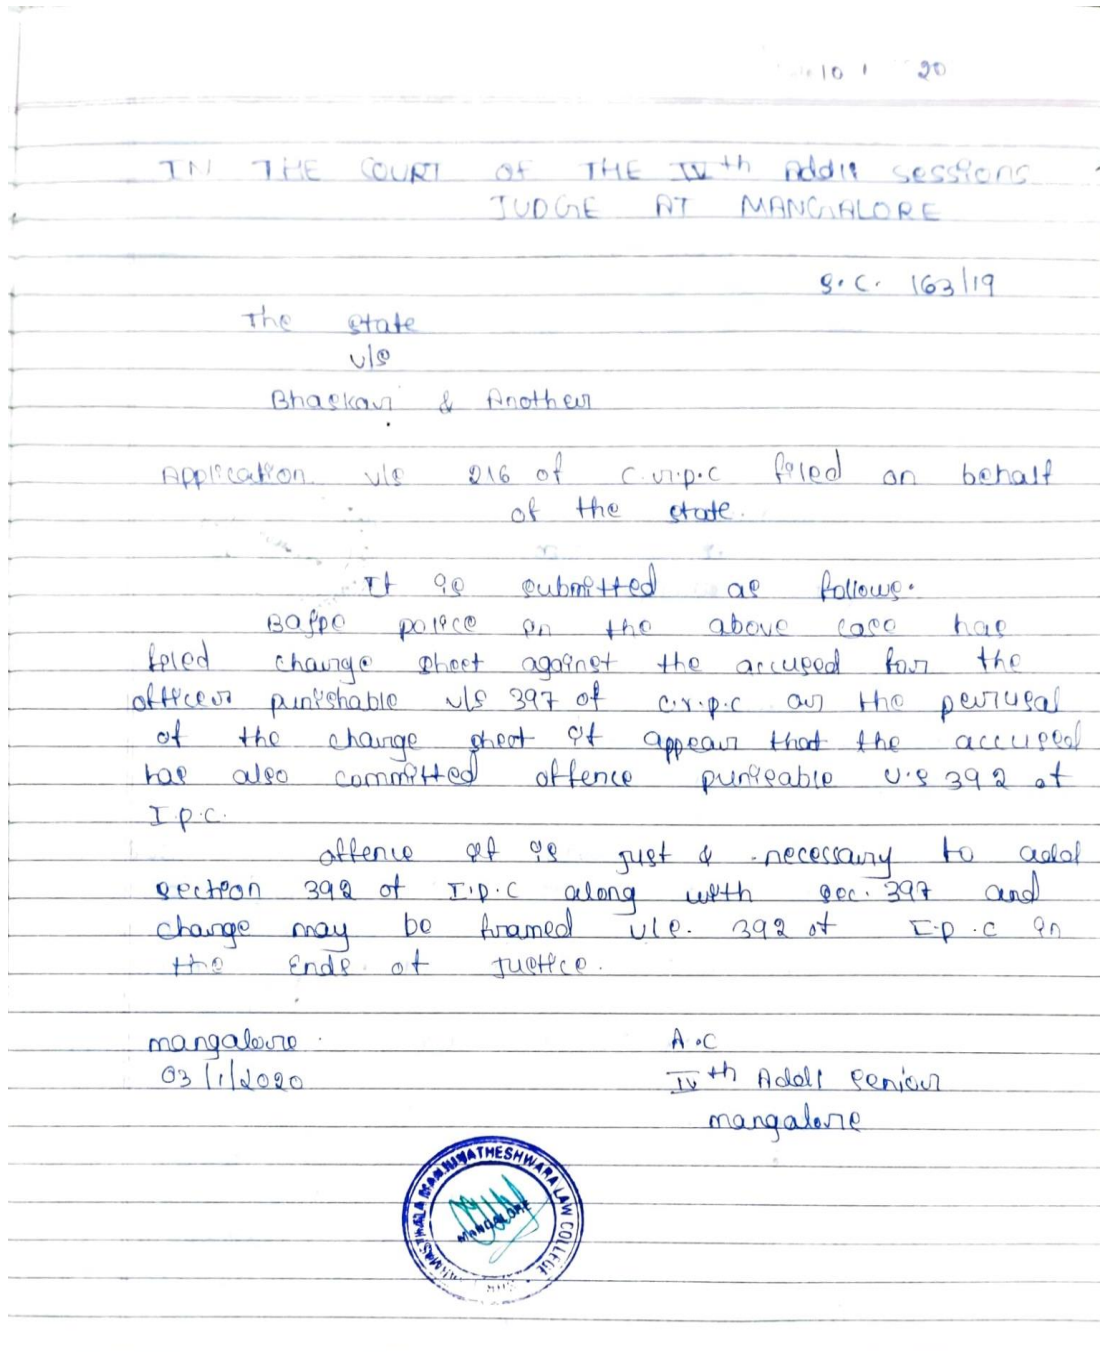 10 1 20
IN THE COURT OF THE IVth Addll sessions
JUDGE AT MANGALORE
S.C. 163/19
The state
v/s
Bhaskar & Another
Application u/s 216 of C.r.p.c filed on behalf
of the state.
It is submitted as follows.
Bajpe police in the above case has
filed charge sheet against the accused for the
officer punishable u/s 397 of c.r.p.c on the perusal
of the charge sheet it appear that the accused
has also committed offence punisable U.S 392 of
I.p.c.
offence it is just & necessary to add
section 392 of I.p.c along with sec. 397 and
charge may be framed u/s. 392 of I.p.c in
the Ends of Justice.
mangalore
03/1/2020
A.C
IVth Addl senior
mangalore
MANJUNATHESHWARA LAW COLLEGE
MANGALORE